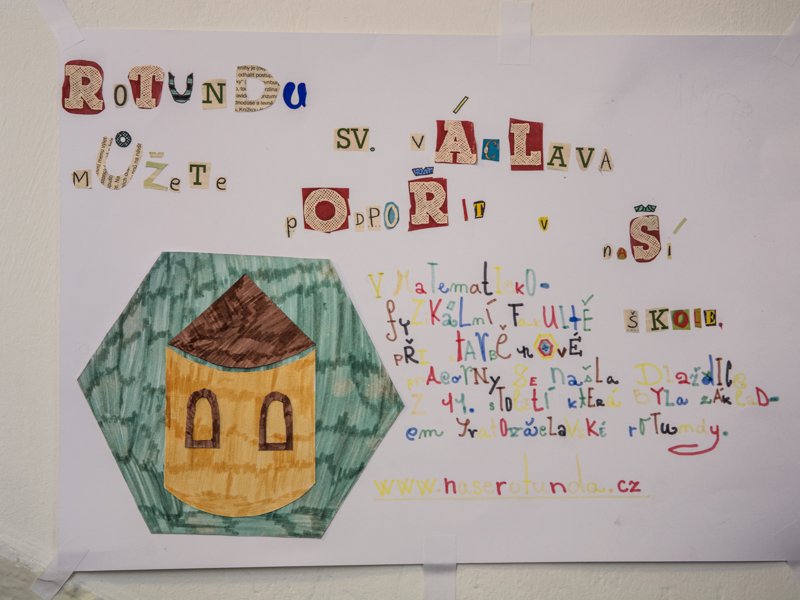 ROTUNDU
SV. VÁCLAVA
MŮŽETE
PODPOŘIT V NAŠÍ
ŠKOLE.
V Matematicko-
fyZIKáLní FakULtĚ
PŘI stavbĚ nové
podeorny SE našla DlažDICe
Z 11. stoletÍ kterÁ BYLa záKLaD-
em Svatováclavské rotundy.
www.naserotunda.cz